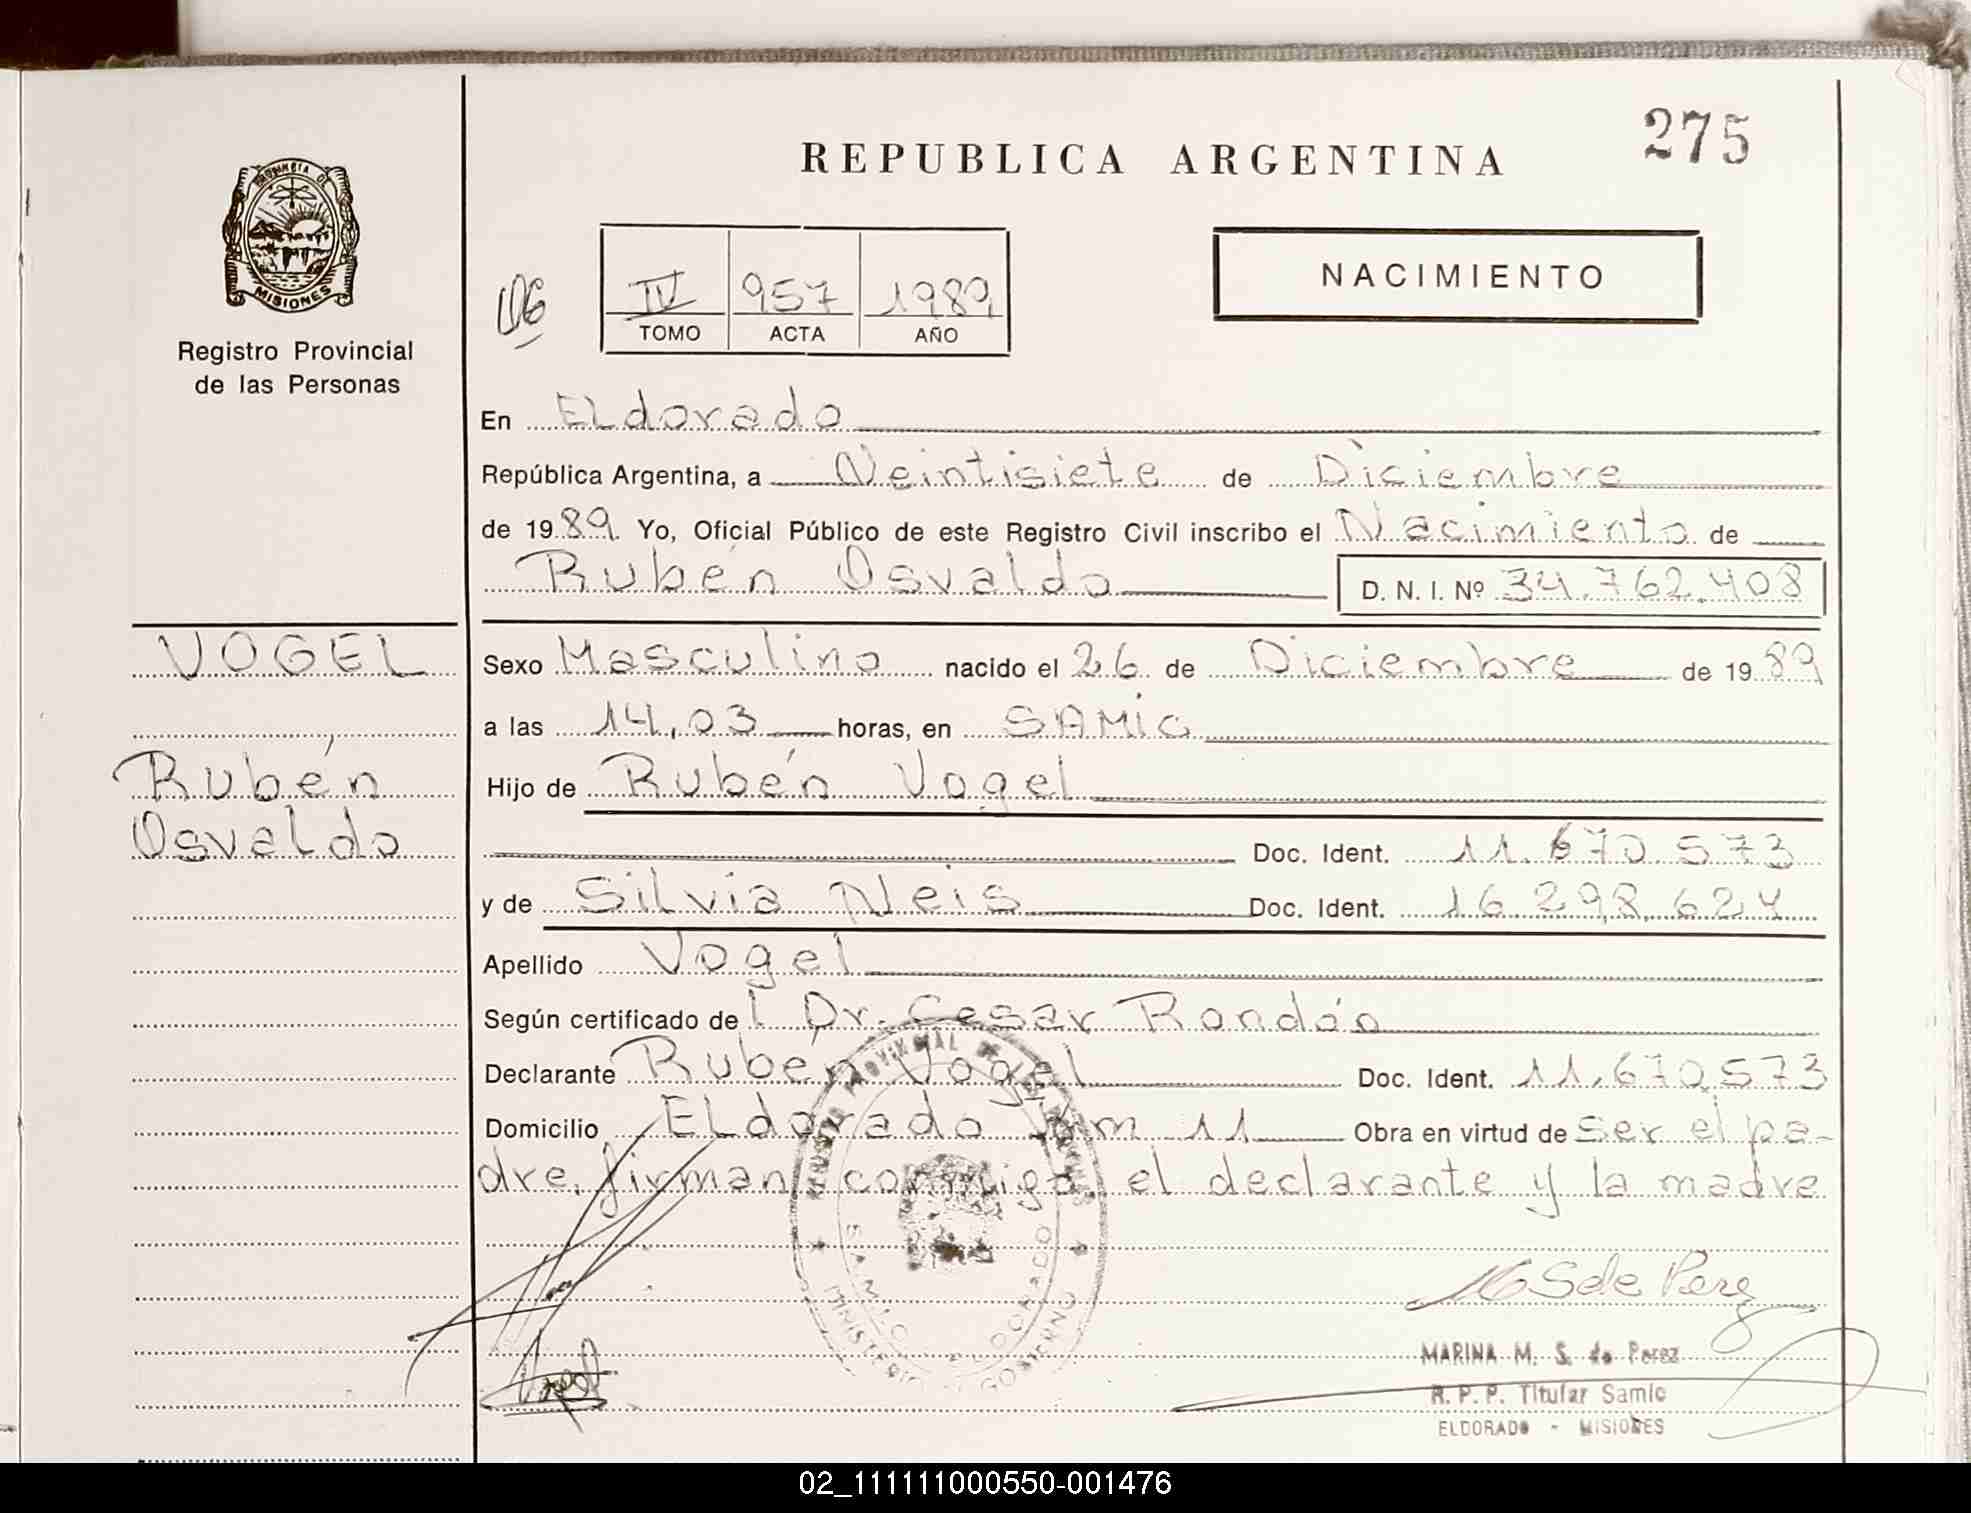 275
REPUBLICA ARGENTINA
PROVINCIA DE
MISIONES
Registro Provincial
de las Personas
IV 957 1989
TOMO ACTA AÑO
NACIMIENTO
En Eldorado
República Argentina, a Veintisiete de Diciembre
de 1989. Yo, Oficial Público de este Registro Civil inscribo el Nacimiento de
Rubén Osvaldo D. N. I. Nº 34.762.408
VOGEL
Rubén
Osvaldo
Sexo Masculino nacido el 26 de Diciembre de 1989
a las 14,03 horas, en SAMIC
Hijo de Rubén Vogel
Doc. Ident. 11.670.573
y de Silvia Neis Doc. Ident. 16.298.624
Apellido Vogel
Según certificado del Dr. Cesar Rondón
Declarante Rubén Vogel Doc. Ident. 11.670.573
Domicilio Eldorado Km 11 Obra en virtud de ser el pa-
dre, firman conmigo el declarante y la madre
MINISTERIO DE GOBIERNO
ELDORADO
MS de Perez
MARINA M. S. de Perez
R. P. P. Titular Samic
ELDORADO - MISIONES
02_111111000550-001476